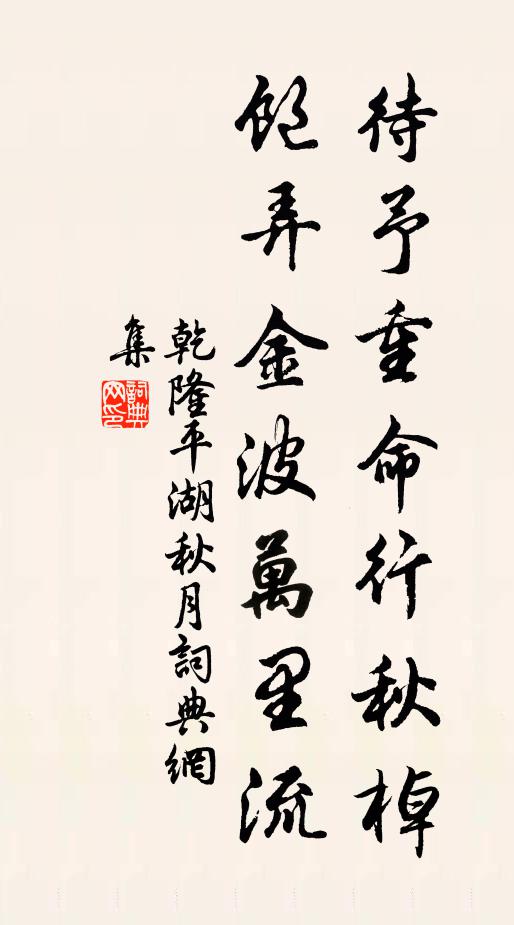 待予重命行秋棹
飽弄金波萬里流
乾隆平湖秋月詞典網
集
詞典網印